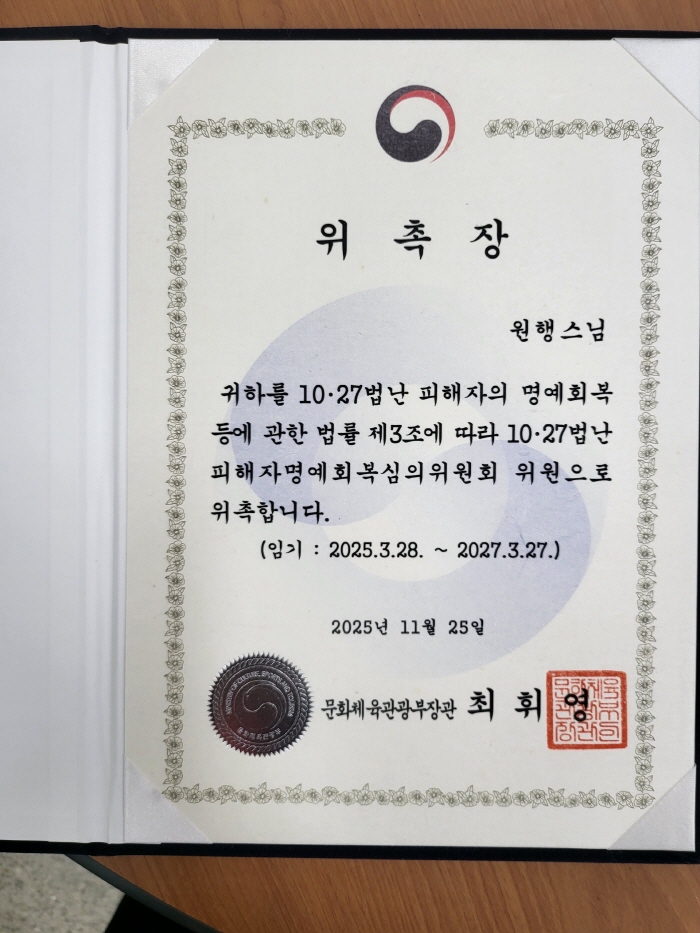 위 촉 장
원행스님
귀하를 10·27법난 피해자의 명예회복
등에 관한 법률 제3조에 따라 10·27법난
피해자명예회복심의위원회 위원으로
위촉합니다.
(임기 : 2025.3.28. ~ 2027.3.27.)
2025년 11월 25일
MINISTRY OF CULTURE, SPORTS AND TOURISM
문화체육관광부
문화체육관광부장관 최 휘 영
문화체육
관광부
장관의